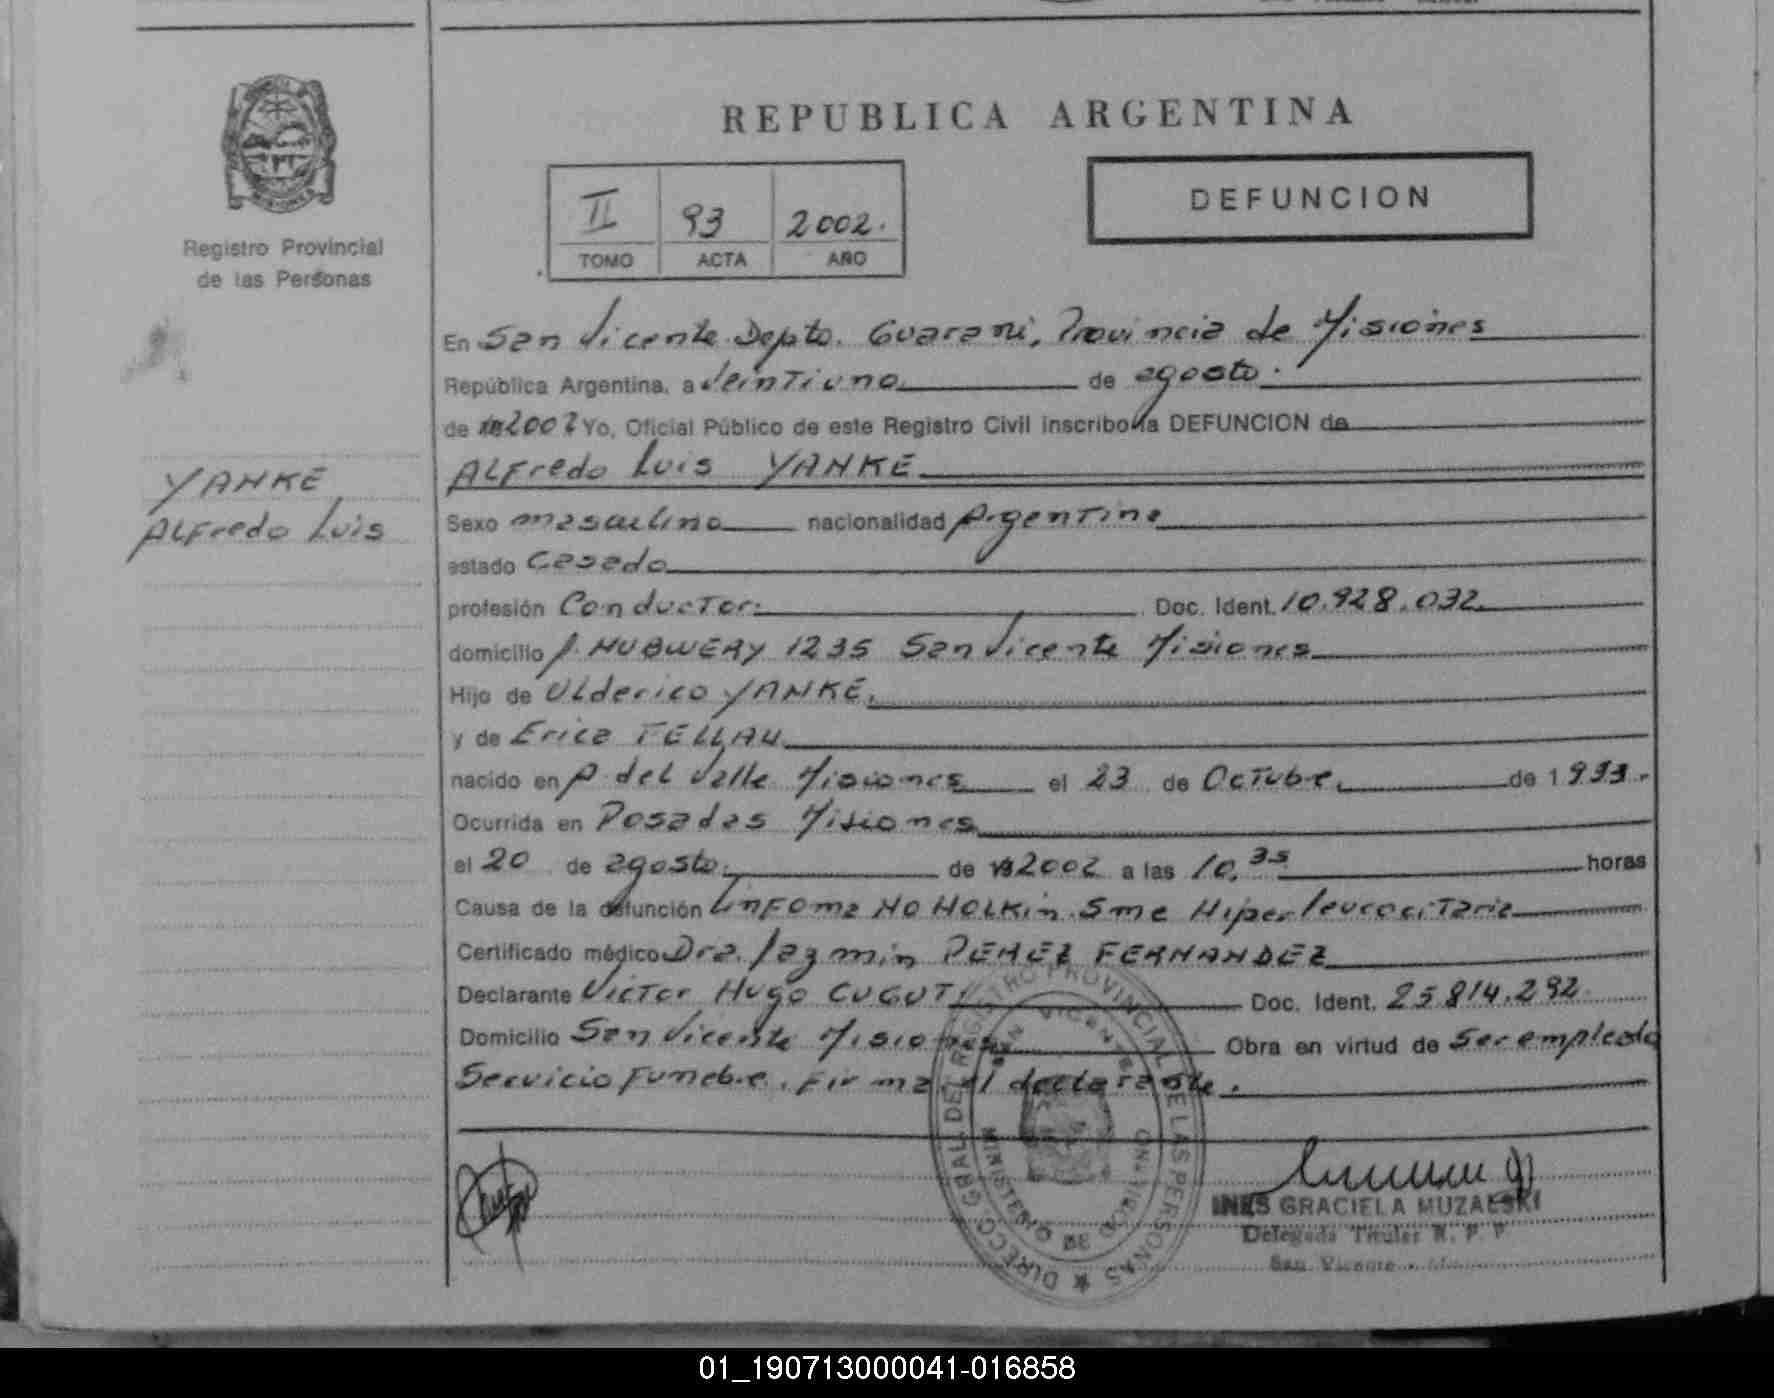 REPUBLICA ARGENTINA
DEFUNCION
II 93 2002.
TOMO ACTA AÑO
Registro Provincial
de las Personas
En San Vicente Depto. Guarani, Provincia de Misiones
República Argentina, a Veintiuno de agosto.
de 2002 Yo, Oficial Público de este Registro Civil inscribo la DEFUNCION de
ALFredo Luis YANKE
YANKE
ALFredo Luis
Sexo masculino nacionalidad Argentina
estado Casado
profesión Conductor. Doc. Ident. 10.928.032
domicilio 1235 San Vicente Misiones
Hijo de Ulderico YANKE.
y de Erica
nacido en P. del Valle Misiones el 23 de Octubre de 1953.
Ocurrida en Posadas Misiones
el 20 de agosto. de 2002 a las 10,35 horas
Causa de la defunción Linfoma NO HOLKin. Sme Hiperleucocitaria
Certificado médico Dra. Jazmin PEREZ FERNANDEZ
Declarante Victor Hugo Doc. Ident. 25.814.292
Domicilio San Vicente Misiones Obra en virtud de Ser empleado
Servicio Funebre. Firma el declarante.
DIRECC. GRAL. DEL REGISTRO PROVINCIAL DE LAS PERSONAS
SAN VICENTE
MINISTERIO DE GOBIERNO
INES GRACIELA MUZALSKI
Delegada Titular R. P. P.
San Vicente
01_190713000041-016858